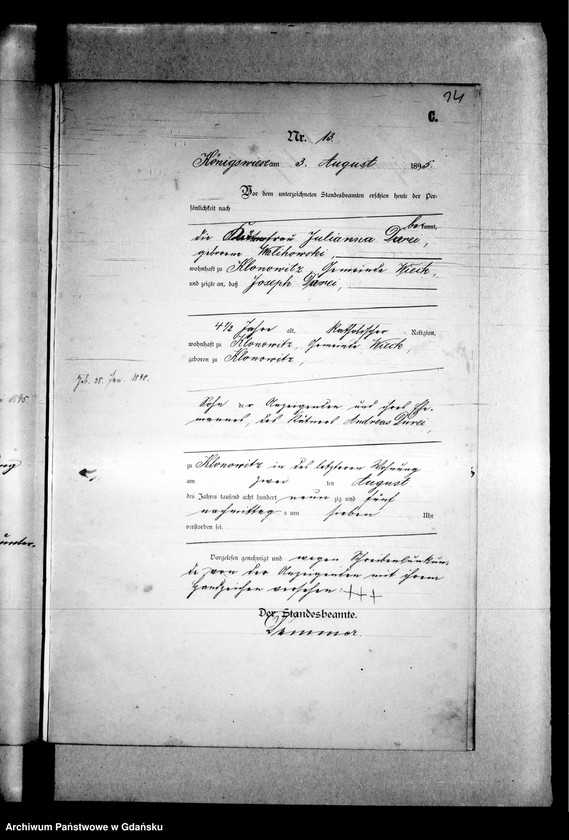 74
C.
Nr. 13.
Königswiese am 3. August 1895.
Vor dem unterzeichneten Standesbeamten erschien heute der Per-
sönlichkeit nach
bekannt,
die Kätnerfrau Julianna Durei,
geborene
wohnhaft zu Klonowitz, Gemeinde Wieck,
und zeigte an, daß Joseph Durei,
4 1/2 Jahre alt, katholischer Religion,
wohnhaft zu Klonowitz, Gemeinde Wieck,
geboren zu Klonowitz,
Geb. 28. Jan. 1891.
Sohn der Anzeigenden und ihres Ehe-
mannes, des Kätners Andreas Durei,
zu Klonowitz in des letzteren Wohnung
am zwei ten August
des Jahres tausend acht hundert neunzig und fünf
nachmittags um sieben Uhr
verstorben sei.
Vorgelesen genehmigt und wegen Schreibensunkun-
de von der Anzeigenden mit ihrem
Handzeichen versehen: +++
Der Standesbeamte.
1895
Archiwum Państwowe w Gdańsku